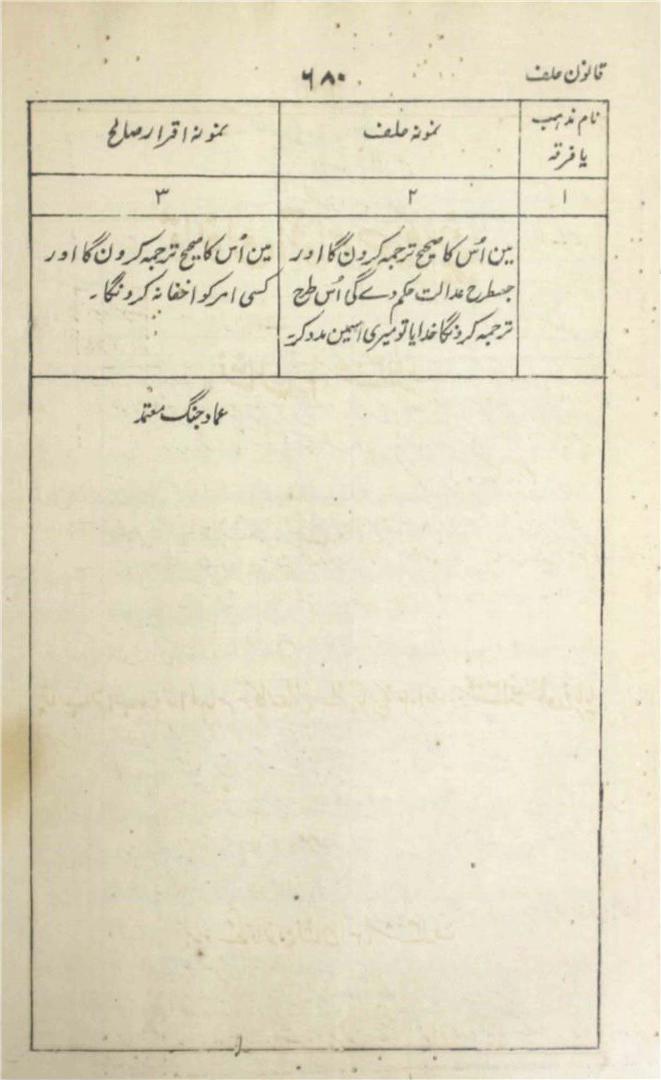 قانون حلف
۶۸۰
نام مذہب
یا فرقہ
نمونہ حلف
نمونہ اقرار صالح
۱
۲
۳
مین اُس کا صحیح ترجمہ کرون گا اور
جسطرح عدالت حکم دے گی اُس طرح
ترجمہ کرونگا خدایا تو میری اسمین مدد کر۔
مین اُس کا صحیح ترجمہ کرون گا اور
کسی امر کو اخفا نہ کرونگا۔
عماد جنگ معتمد